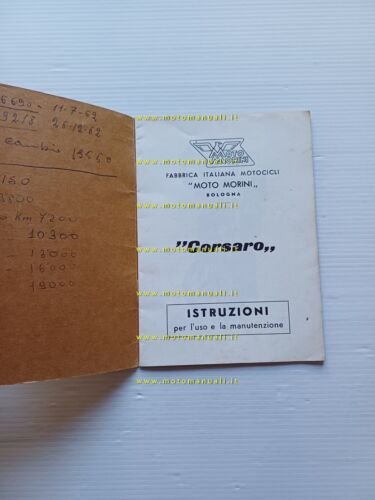 6690 - 11-7-62
9218 26-12-62
cambio 13550
150
3500
Km 7200
10300
- 13000
- 16000
19000
MOTO MORINI
FABBRICA ITALIANA MOTOCICLI
"MOTO MORINI„
BOLOGNA
"Corsaro„
ISTRUZIONI
per l'uso e la manutenzione
www.motomanuali.it
www.motomanuali.it
www.motomanuali.it
www.motomanuali.it
www.motomanuali.it
www.motomanuali.it